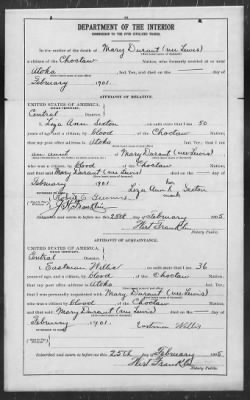 DEPARTMENT OF THE INTERIOR
COMMISSION TO THE FIVE CIVILIZED TRIBES.
In the matter of the death of Mary Durant (nee Lewis)
a citizen of the Choctaw Nation, who formerly resided at or near
Atoka, Ind. Ter., and died on the — day of
February, 1901.
AFFIDAVIT OF RELATIVE.
UNITED STATES OF AMERICA,
Central
I, Liza Ann Sexton, on oath state that I am 50
years of age and a citizen, by blood, of the Choctaw
Nation; that my post office address is Atoka, Ind. Ter.; that I am
an aunt of Mary Durant (nee Lewis)
who was a citizen, by blood, of the Choctaw
and that said Mary Durant (nee Lewis) died on the — day of
February, 1901.
Liza Ann Sexton
mark
Subscribed and sworn to before me this 25th day of February 1905
Wirt Franklin
Notary Public.
AFFIDAVIT OF ACQUAINTANCE.
UNITED STATES OF AMERICA,
Central
I, Eastman Willis, on oath state that I am 36
years of age, and a citizen by blood of the Choctaw
Nation; that my post office address is Atoka, Ind. Ter.;
that I was personally acquainted with Mary Durant (nee Lewis)
who was a citizen, by blood, of the Choctaw
and that said Mary Durant (nee Lewis) died on the — day of
February, 1901.
Eastman Willis
Subscribed and sworn to before me this 25th day of February 1905
Wirt Franklin
Notary Public.